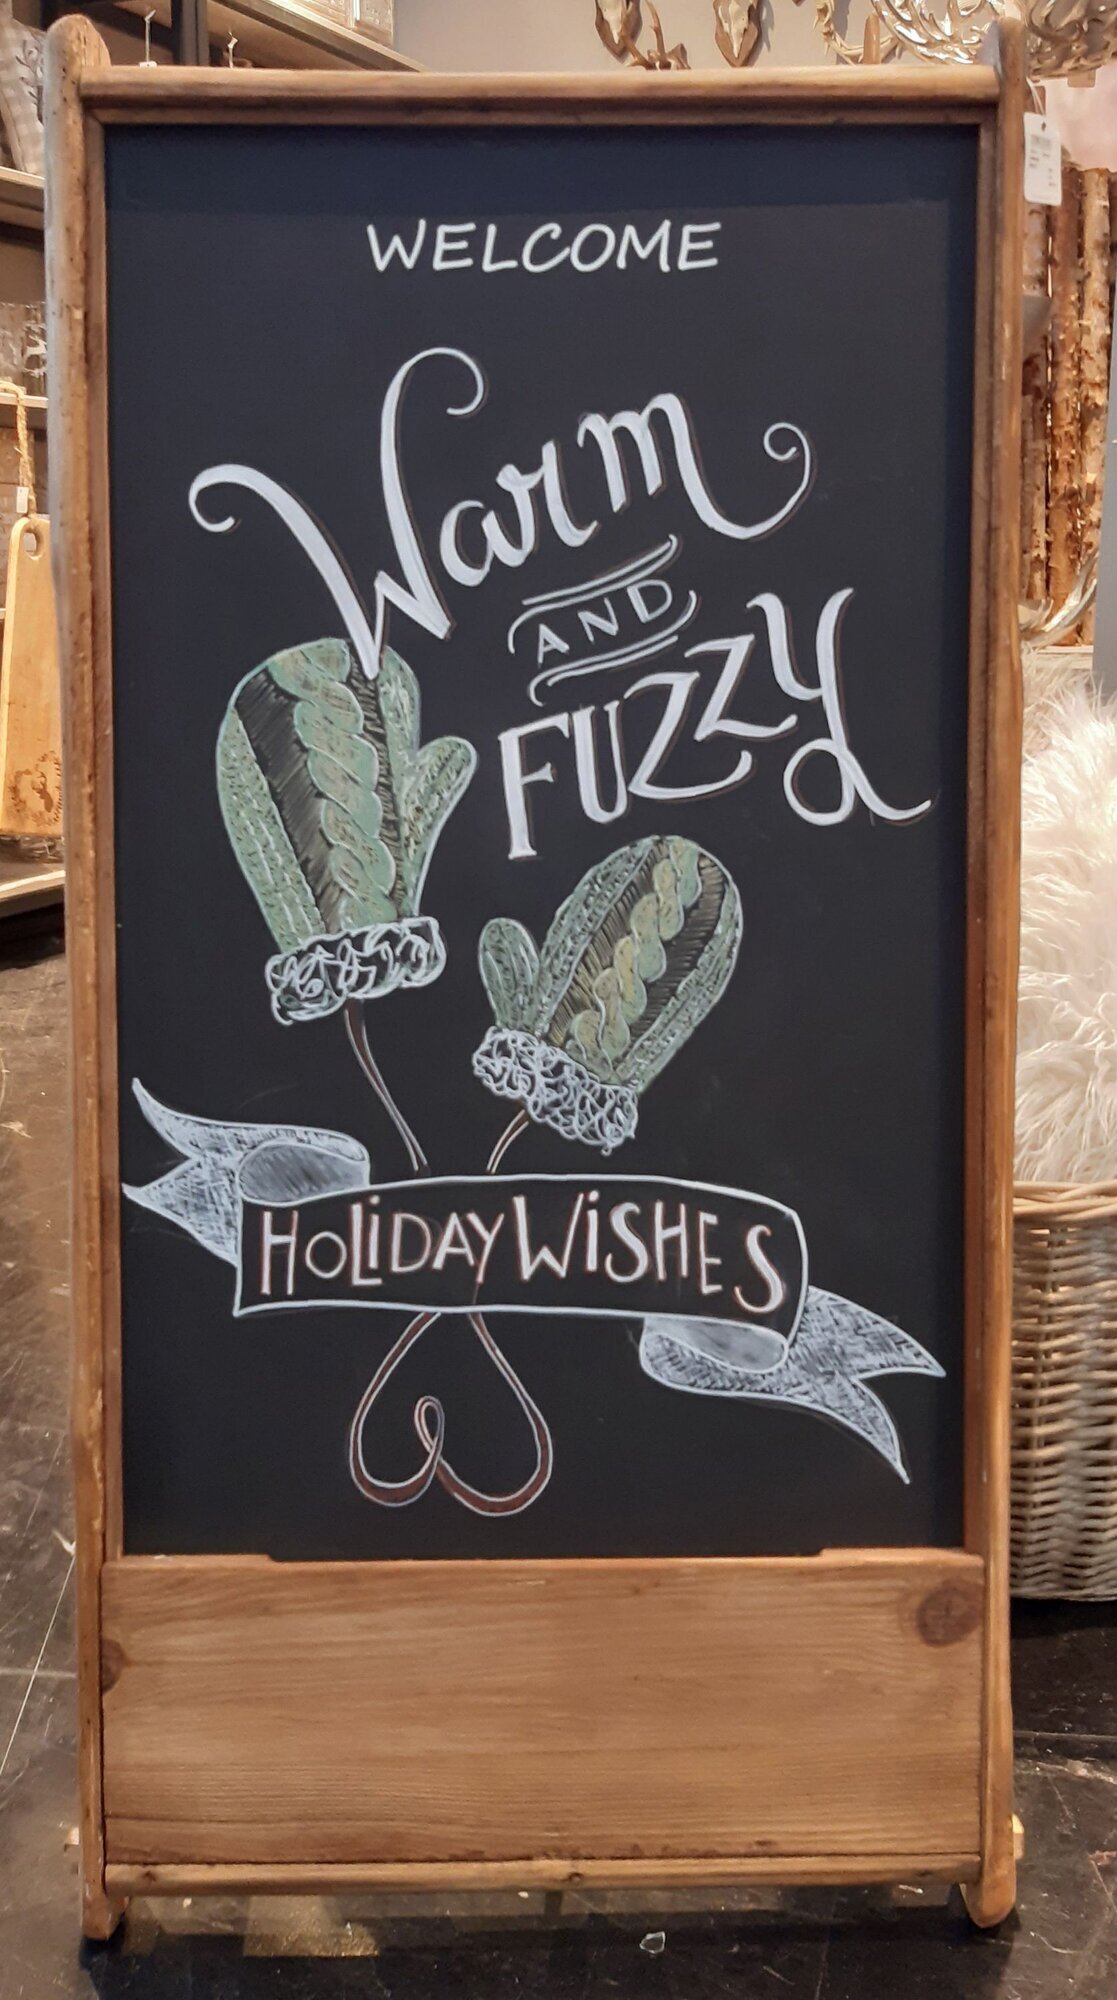 WELCOME
Warm
AND
FUZZY
HOLiDAY WiSHES